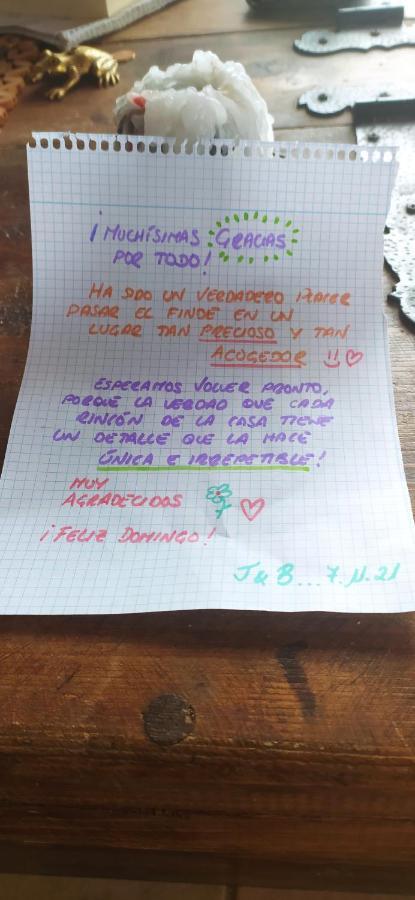 ¡MUCHÍSIMAS GRACIAS
POR TODO!
HA SIDO UN VERDADERO PLACER
PASAR EL FINDE EN UN
LUGAR TAN PRECIOSO Y TAN
ACOGEDOR
ESPERAMOS VOLVER PRONTO,
PORQUE LA VERDAD QUE CADA
RINCÓN DE LA CASA TIENE
UN DETALLE QUE LA HACE
ÚNICA E IRREPETIBLE!
MUY
AGRADECIDOS
¡FELIZ DOMINGO!
J & B...7.11.21